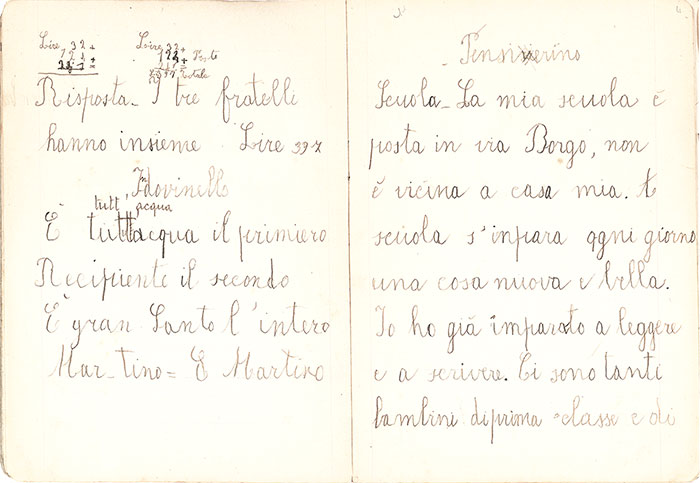 Lire 32+
Lire 32+
Totale
Risposta - I tre fratelli
hanno insieme Lire 397
Indovinello
tutt'acqua
È tuttacqua il primiero
Recipiente il secondo
È gran Santo l'intero
Mar-tino = È Martino
- Pensierino
Scuola - La mia scuola è
posta in via Borgo, non
è vicina a casa mia. A
scuola s'inpara ogni giorno
una cosa nuova e bella.
Io ho già imparato a leggere
e a scrivere. Ci sono tanti
bambini di prima classe e di